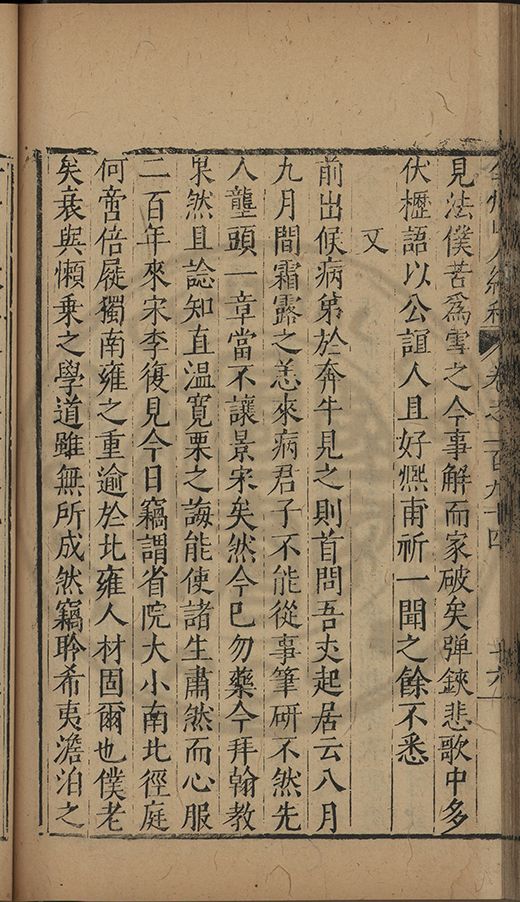 弇州山人續稿 卷之一百九十四 十六
見法僕苦爲雪之今事解而家破矣彈鋏悲歌中多
伏櫪語以公誼人且好爕甫祈一聞之餘不悉
又
前出候病第於奔牛見之則首問吾丈起居云八月
九月間霜露之恙來病君子不能從事筆硏不然先
人壟頭一章當不讓景宋矣然今已勿藥今拜翰教
果然且諗知直溫寛栗之誨能使諸生肅然而心服
二百年來宋李復見今日竊謂省院大小南北徑庭
何啻倍屣獨南雍之重逾於北雍人材固爾也僕老
矣衰與懶乗之學道雖無所成然竊聆希夷澹泊之